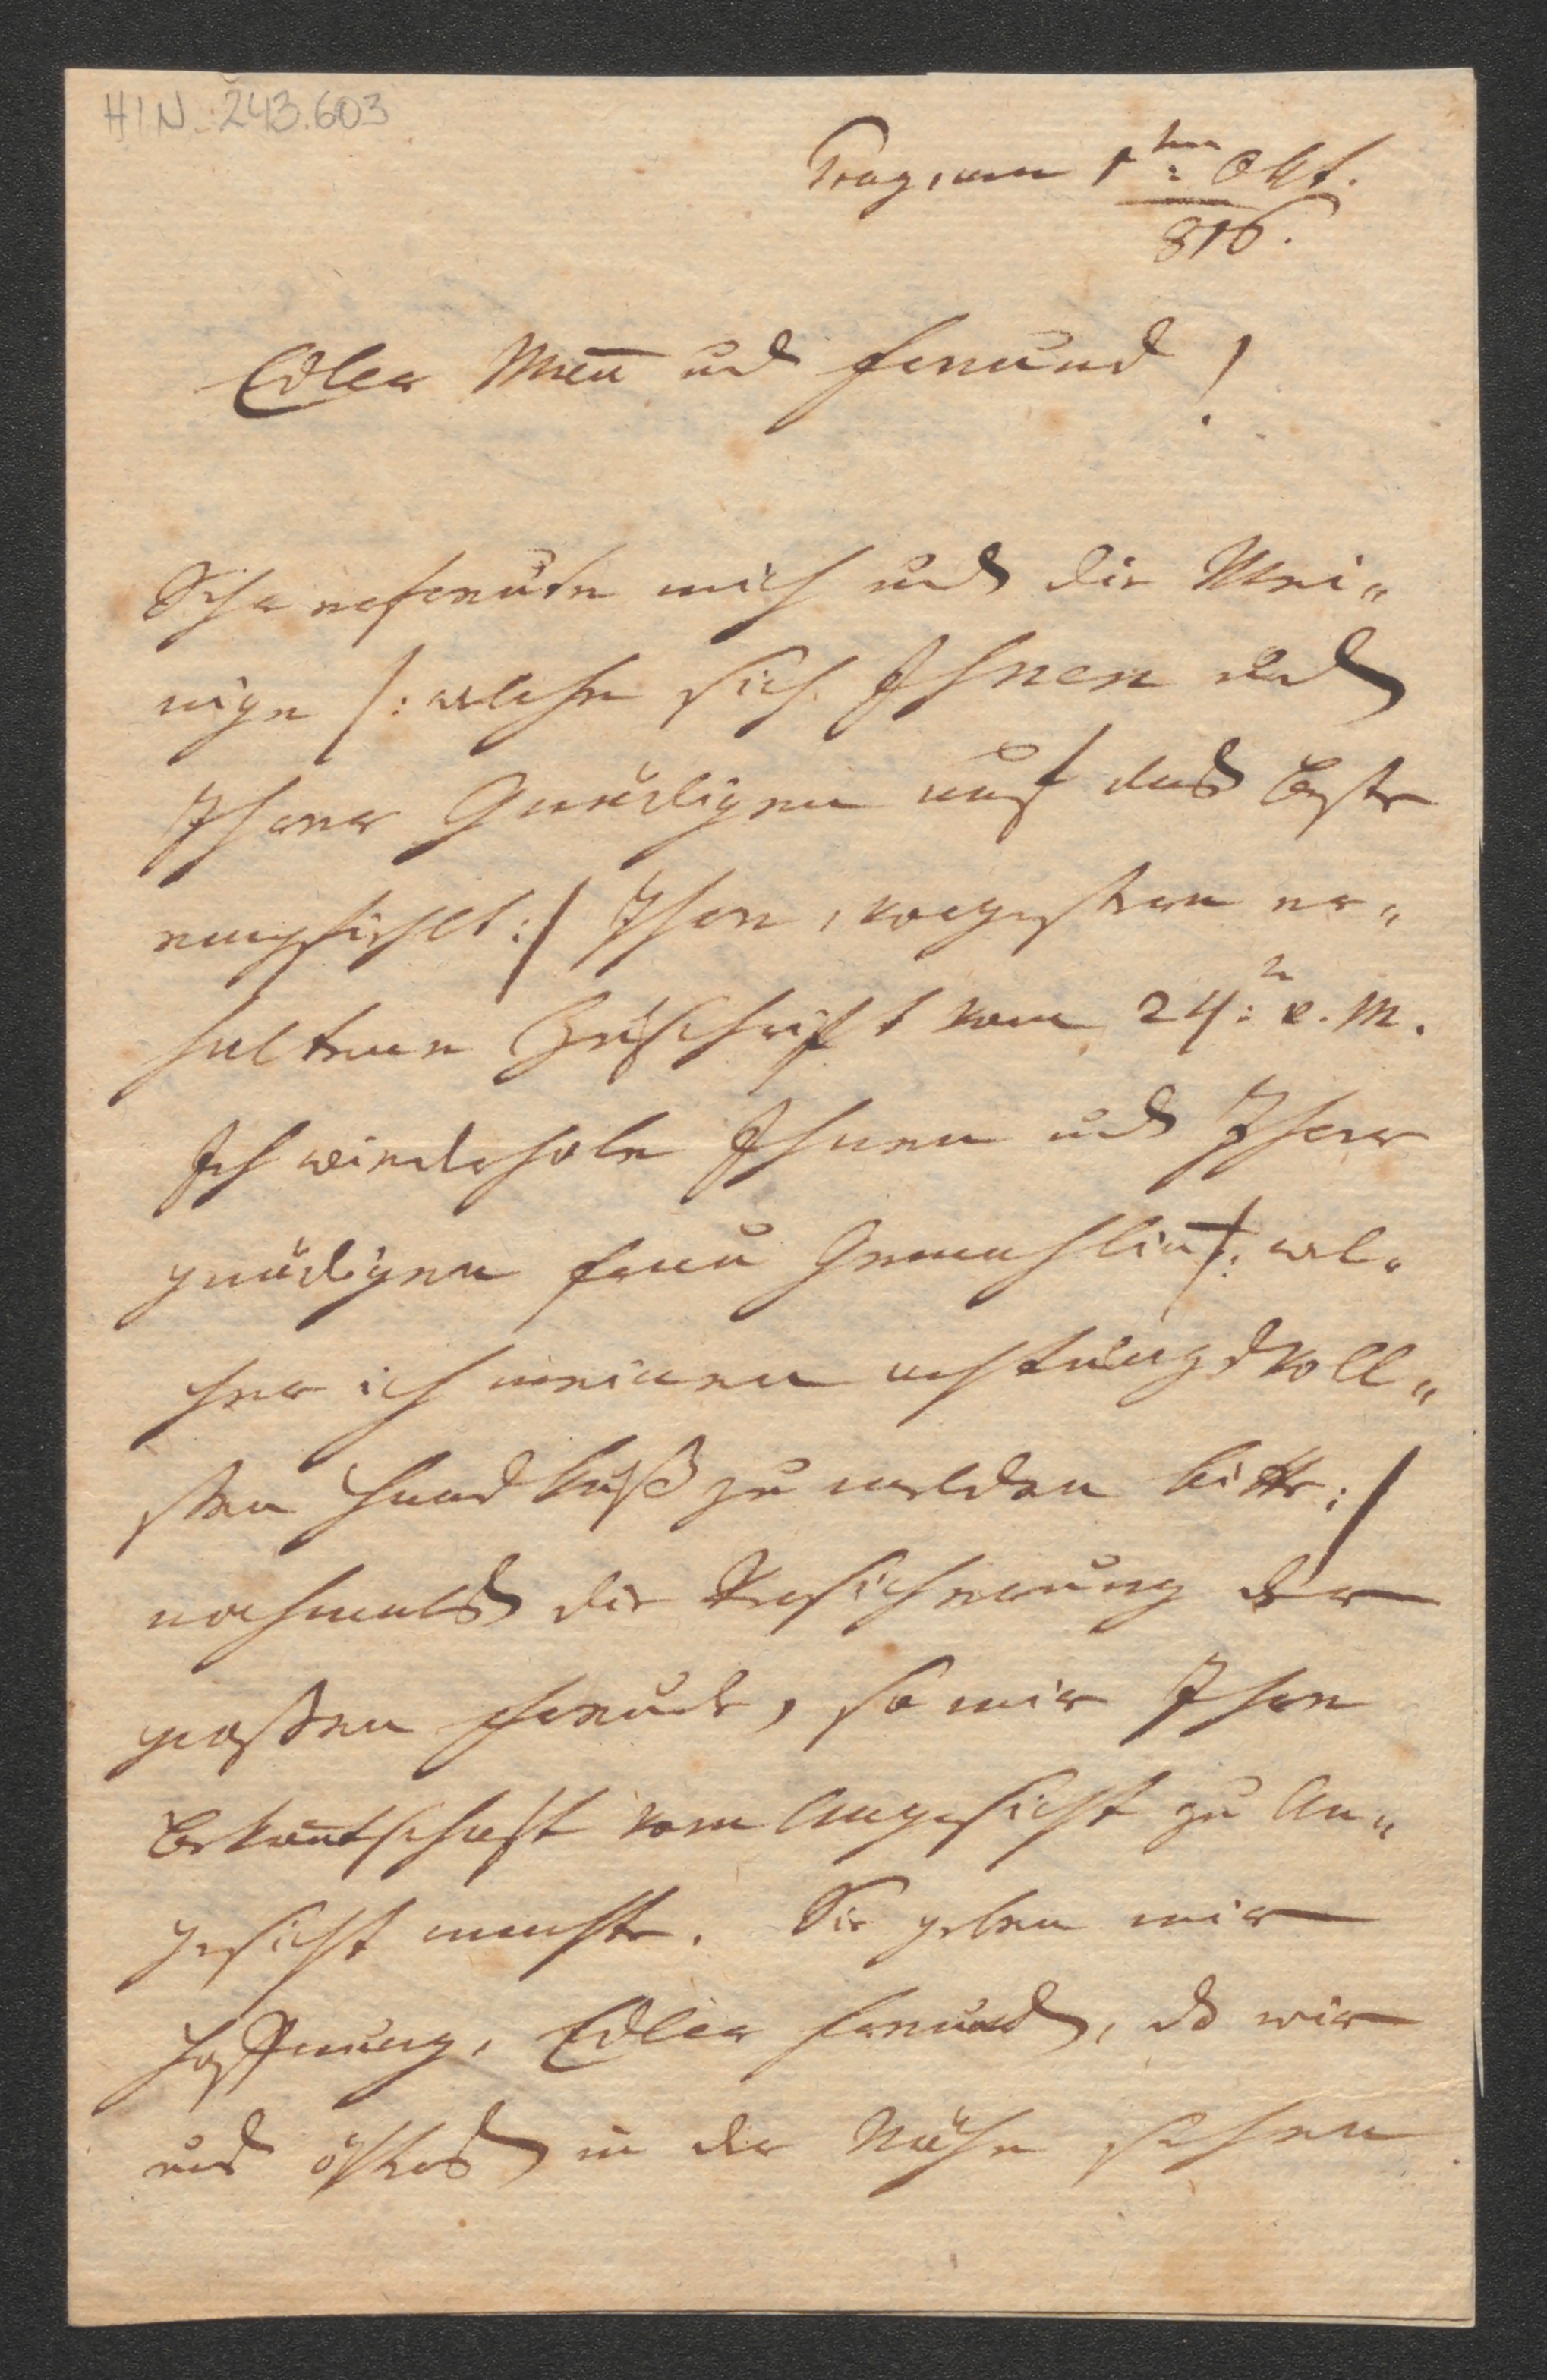 HIN 243.603
Prag, am 1ten Okt.
816.
Edler Man̄ und Freund!
Sehr erfreute mich und die Mei„
nige /: welche sich Ihnen und
Ihrer Gnädigen auf das Beste
empfiehlt :/ Ihre, vorgestern er„
haltene Zuschrift vom 24:n v. M.
Ich wiederhole Ihnen und Ihrer
gnädigen Frau Gemahlin /: wel„
cher ich meinen achtungsvoll„
sten Handkuß zu melden bitte :/
nochmals die Versicherung der
großen Freude, so mir Ihre
Bekan̄tschaft vom Angesicht zu An„
gesicht machte. Sie geben mir
Hoffnung, Edler Freund, dß wir
uns öfters in der Nähe sehen